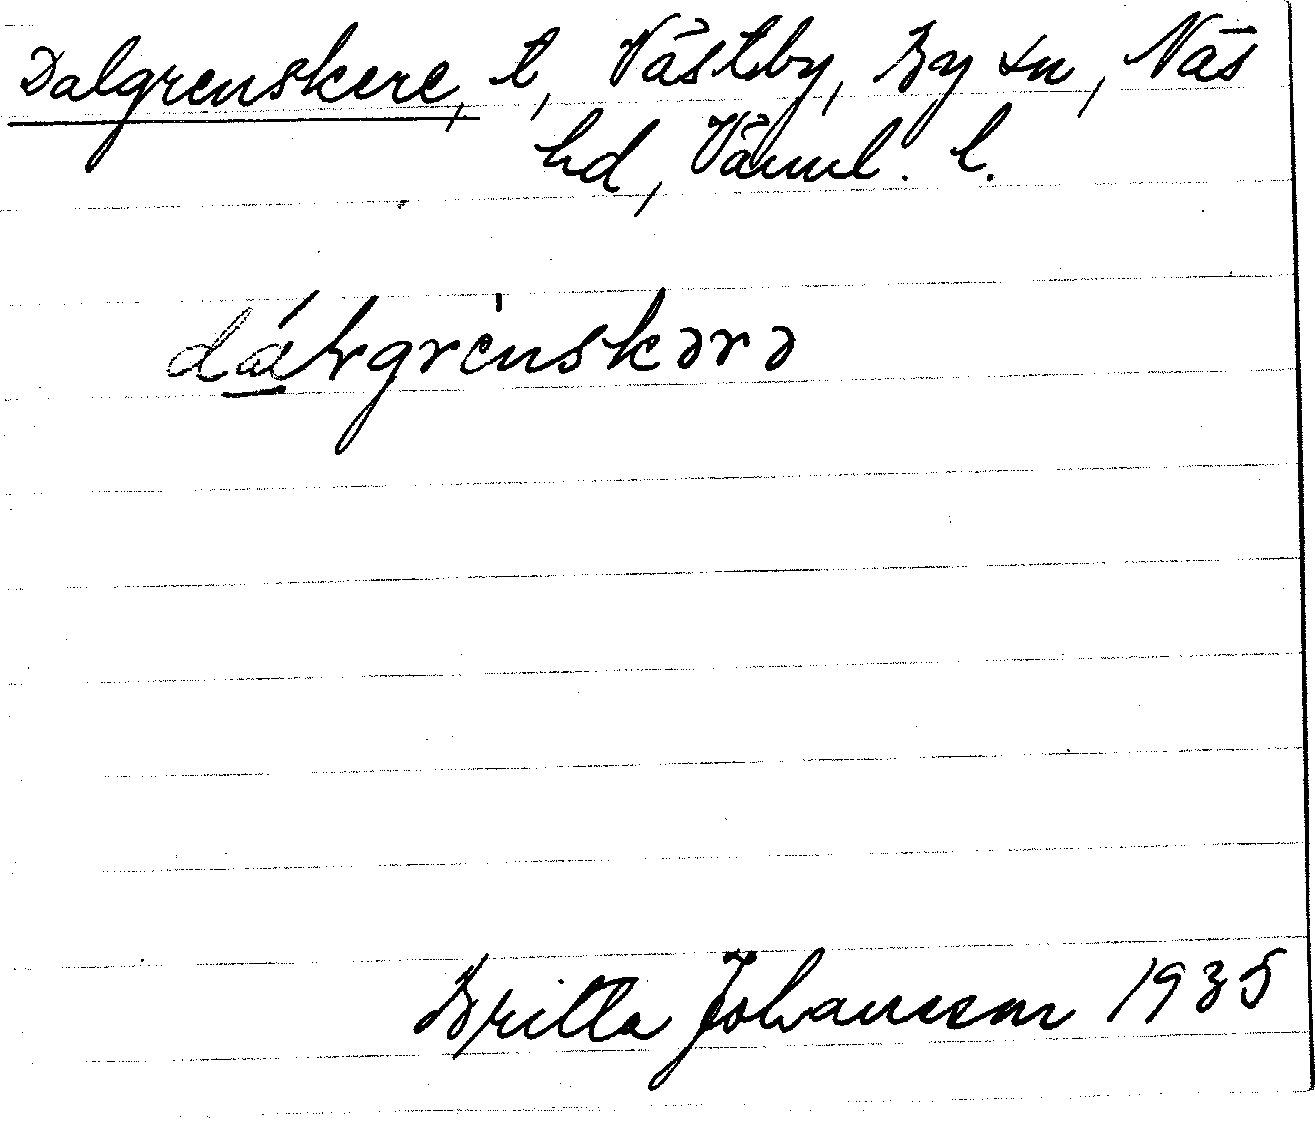 Dalgrenskere, t, Västby, By sn, Näs
hd, Värml. l.
dáɫgrènskərə
Britta Johansson 1935